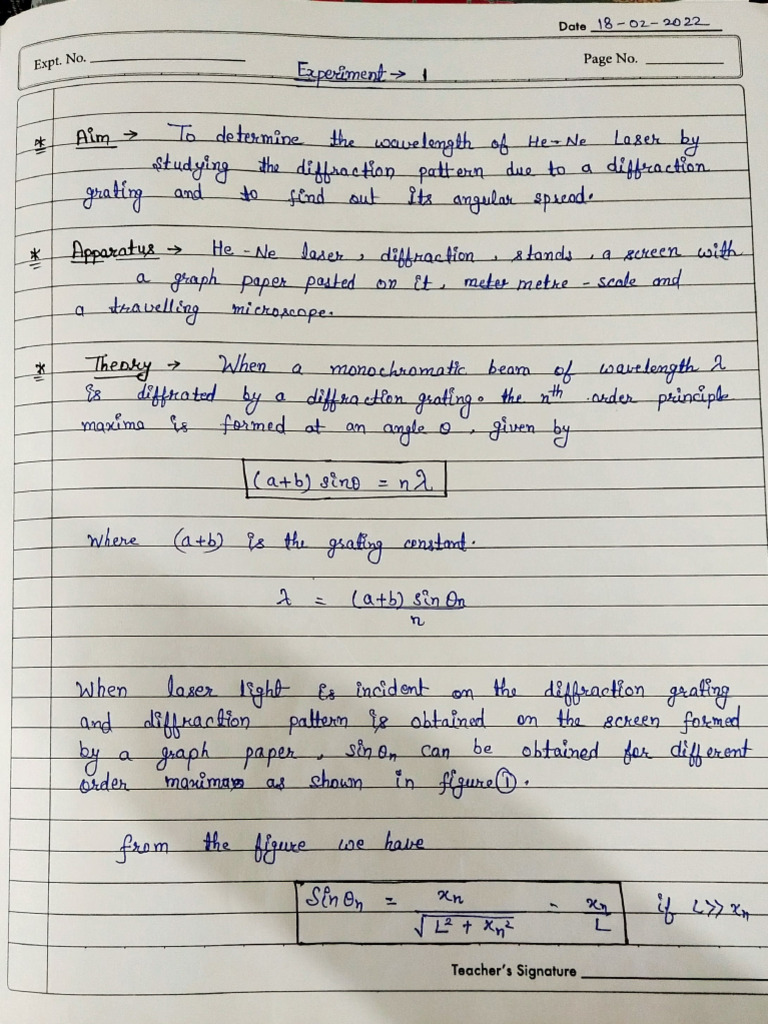 Date 18-02-2022
Expt. No.
Page No.
Experiment → 1
* Aim → To determine the wavelength of He-Ne Laser by
studying the diffraction pattern due to a diffraction
grating and to find out its angular spread.
* Apparatus → He-Ne laser, diffraction, stands, a screen with
a graph paper pasted on it, meter metre-scale and
a travelling microscope.
* Theory → When a monochromatic beam of wavelength λ
is diffrated by a diffraction grating. the nth order principle
maxima is formed at an angle θ, given by
(a+b) sinθ = nλ
Where (a+b) is the grating constant.
λ = (a+b) sin θn
n
When laser light is incident on the diffraction grating
and diffraction pattern is obtained on the screen formed
by a graph paper, sinθn can be obtained for different
order maxima as shown in figure ①.
from the figure we have
Sin θn = xn / √L² + xn² = xn / L if L>> xn
Teacher's Signature